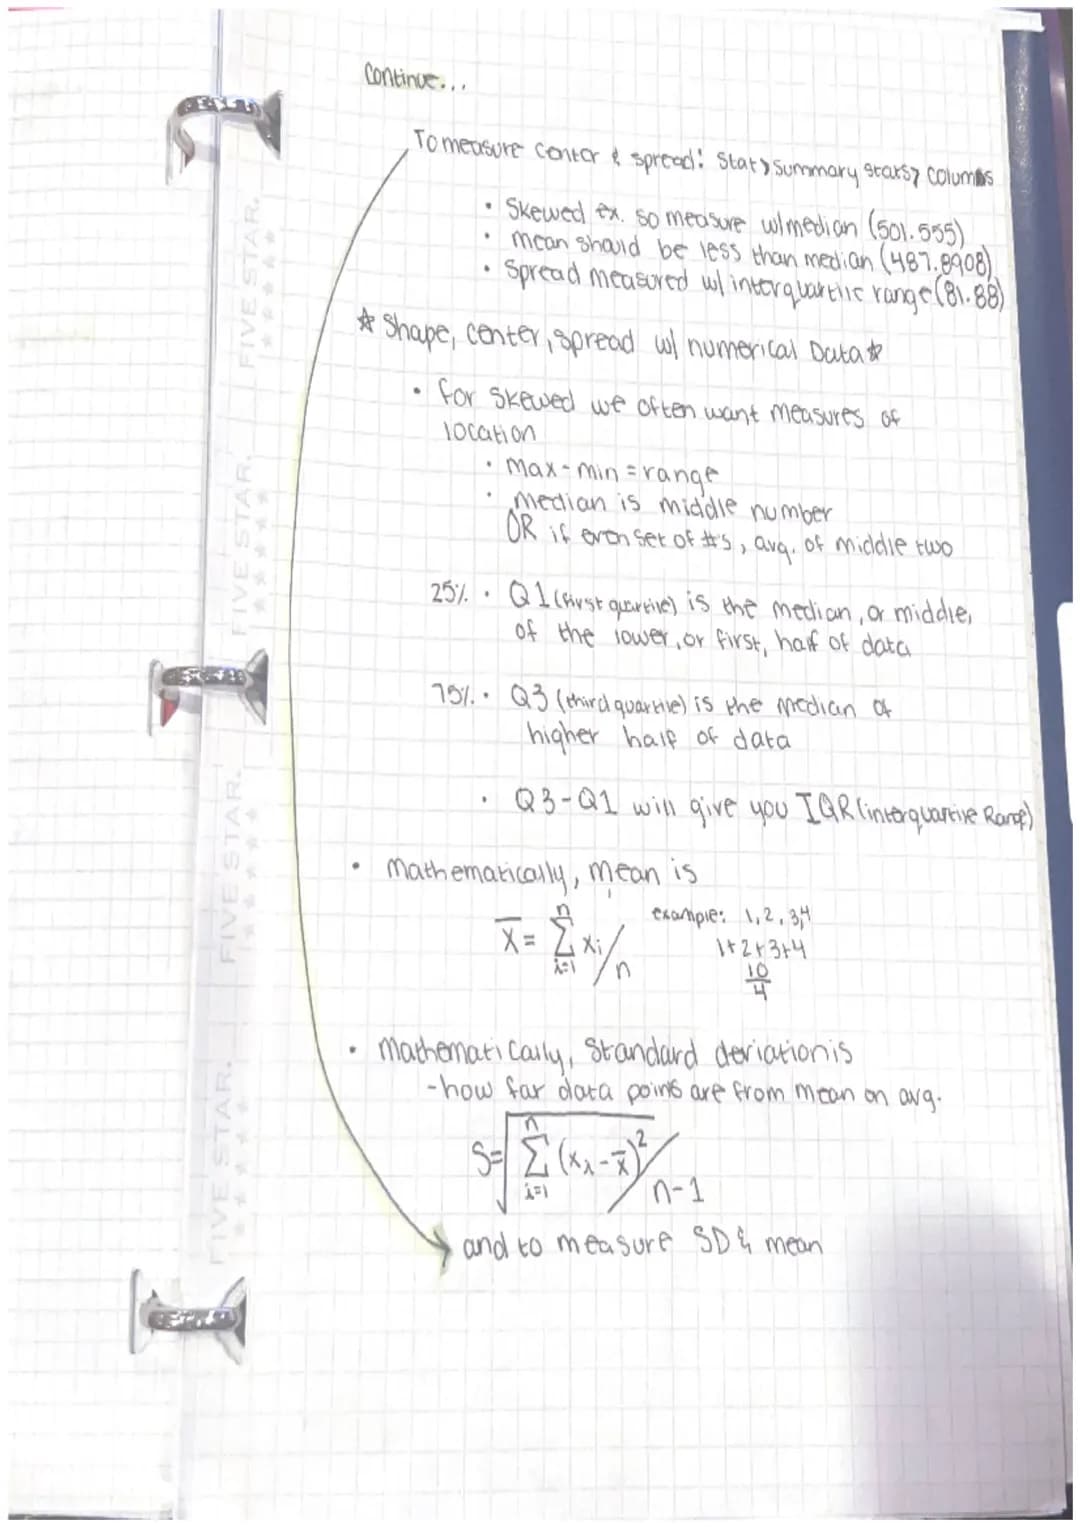 Continue...
To measure center & spread: Stat > Summary stats > Columns
• Skewed ex. so measure w/ median (501.555)
• mean should be less than median (487.8908)
• Spread measured w/ interquartile range (81.88)
☆ Shape, center, spread w/ numerical Data ☆
• for skewed we often want measures of
location
• max - min = range
• median is middle number
OR if even set of #'s, avg. of middle two
25% • Q1 (first quartile) is the median, or middle,
of the lower, or first, half of data
75% • Q3 (third quartile) is the median of
higher half of data
• Q3-Q1 will give you IQR (interquartive Range)
• Mathematically, mean is
x̄ = Σ_{i=1}^{n} xi / n
example: 1, 2, 3, 4
1+2+3+4
10/4
• Mathematically, Standard deviation is
- how far data points are from mean on avg.
S = √Σ_{i=1}^{n} (xi - x̄)² / n-1
and to measure SD & mean
FIVE STAR.
FIVE STAR.
FIVE STAR.
FIVE STAR.